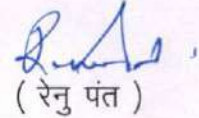 ( रेनु पंत )